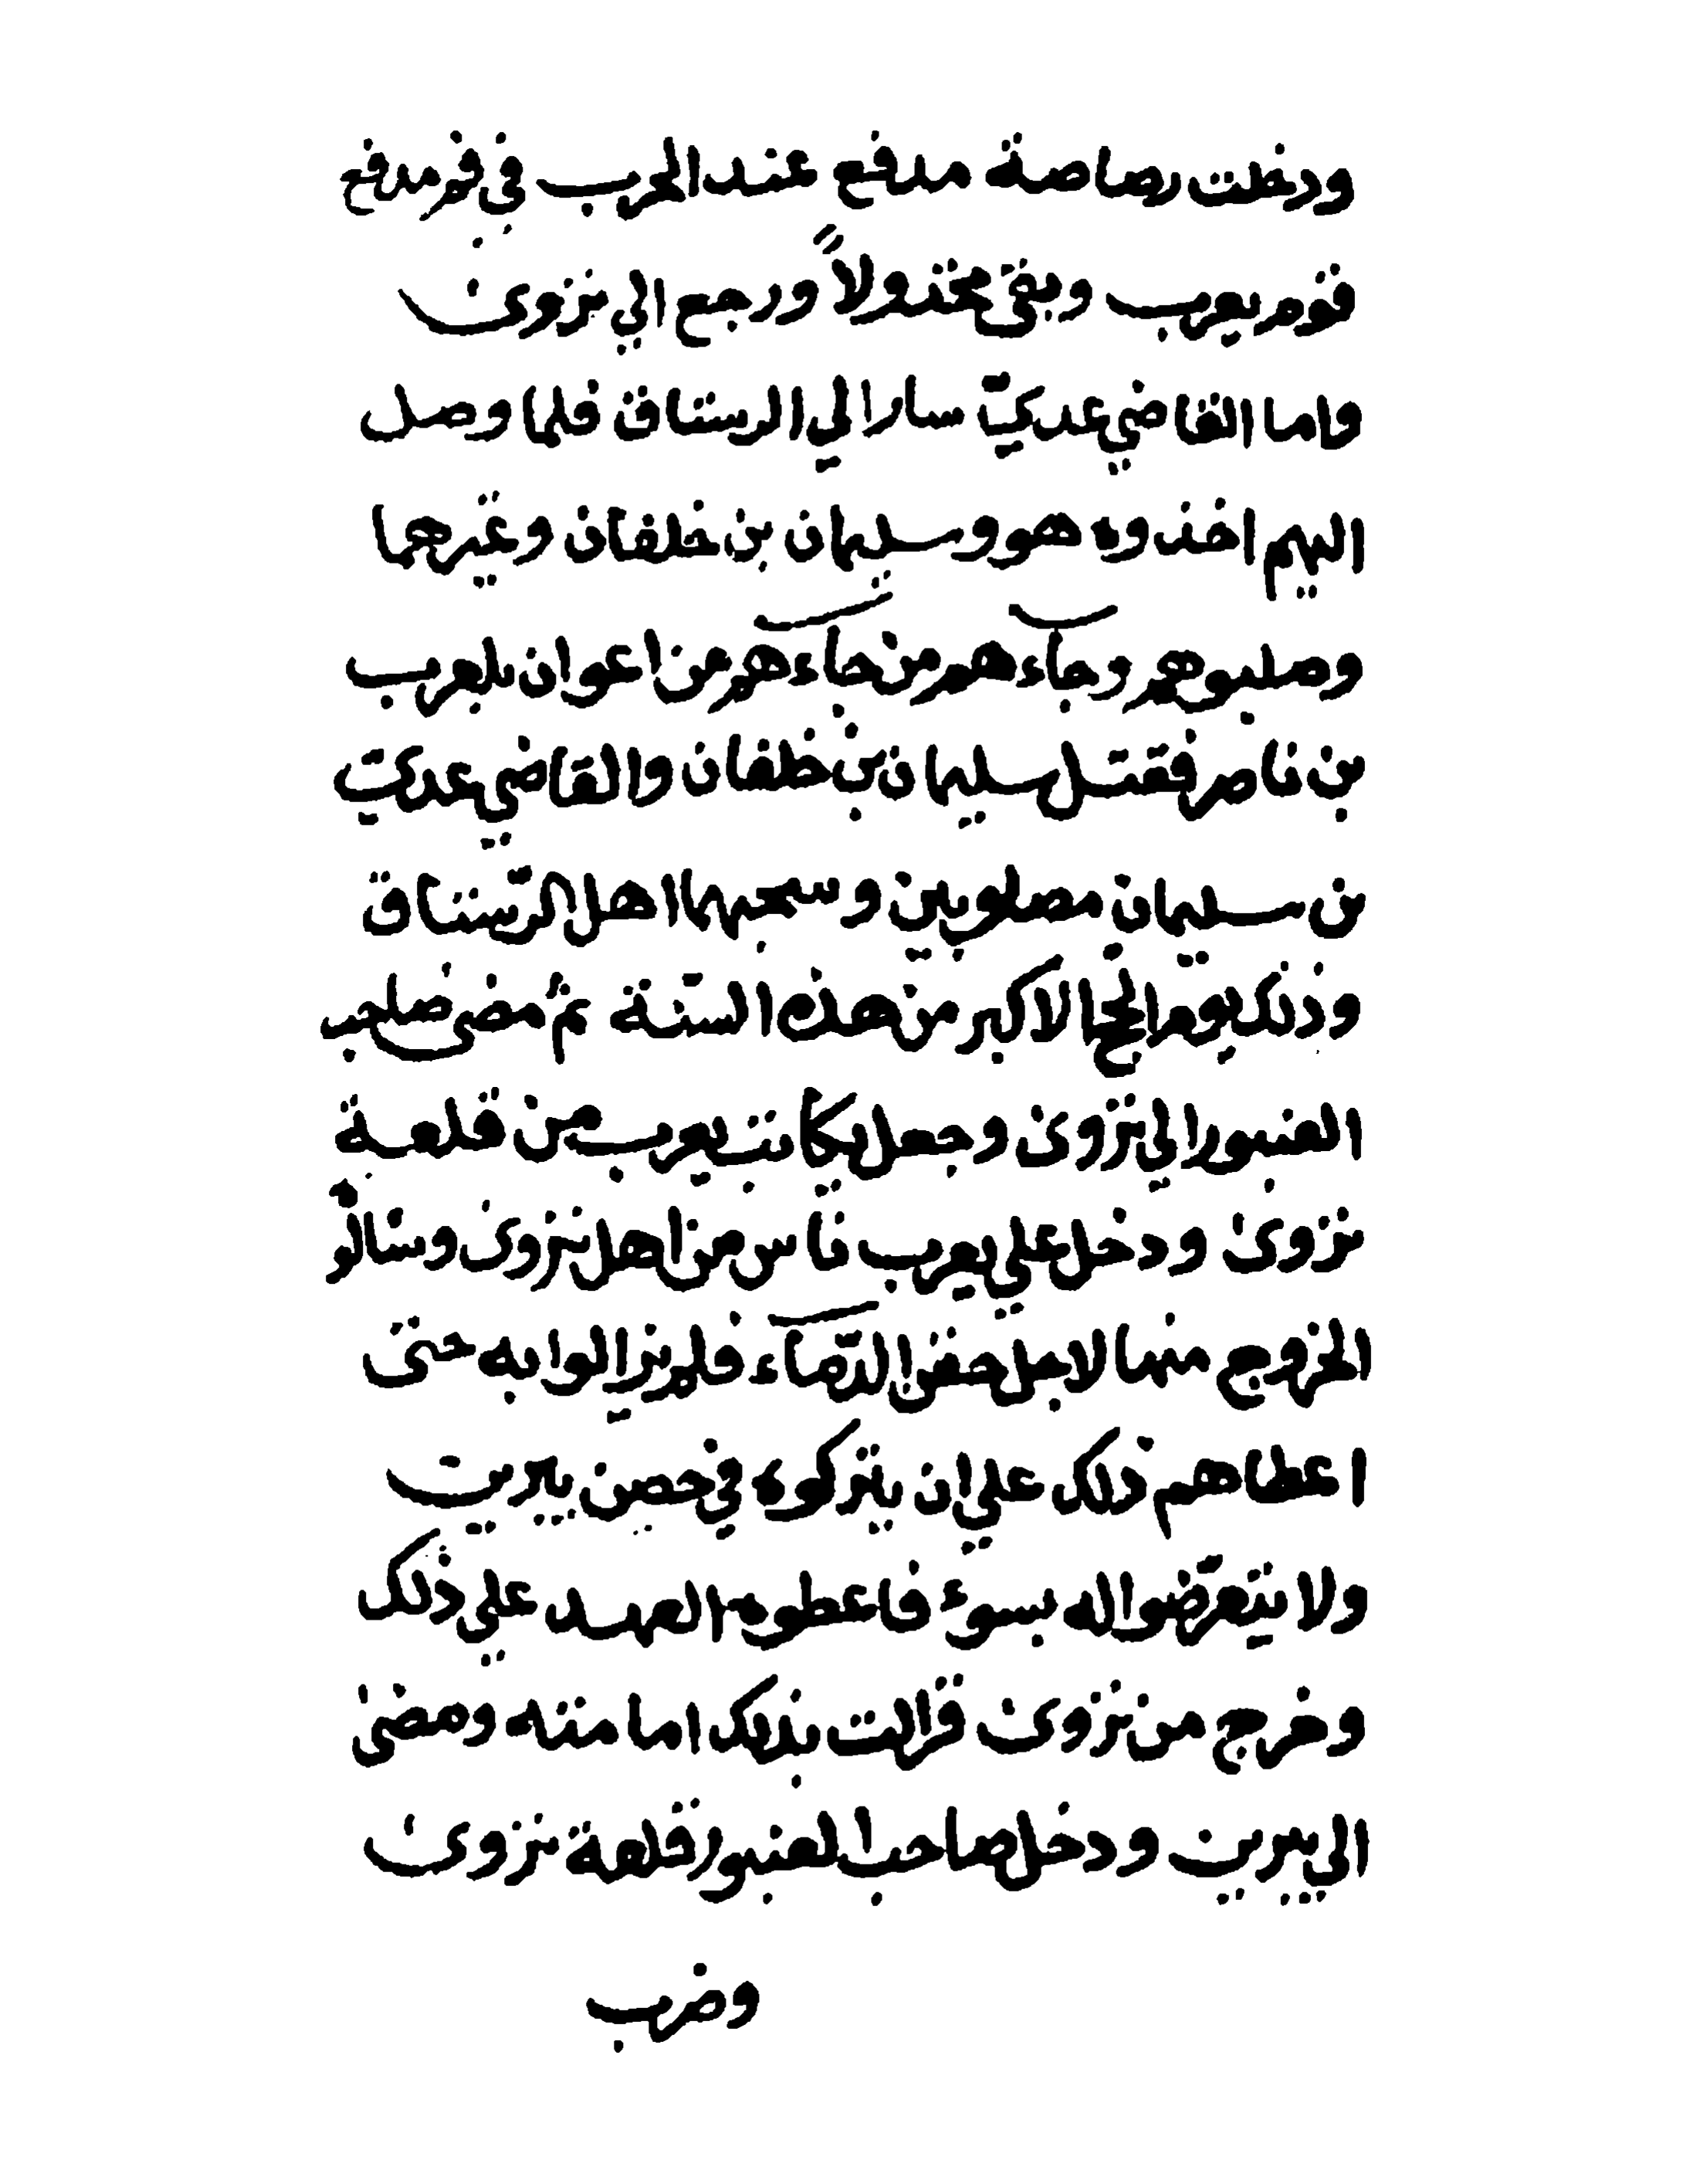 ودخلت رصاصة مدفع عند الحرب في فم مدفع
قوم يعرب وبقي مخذولاً ورجع الي نزوى
واما القاضي عديّ سار الي الرستاق فلما وصل
اليهم اخذوه هو وسليمان بن خلفان وغيرها
وصلبوهم وجآءهم من جآءهم من اعوان بلعرب
بن ناصر فقتل سليمان بن خلفان والقاضي عدي
بن سليمان مصلوبين وسحبهما اهل الرّستاق
وذلك يوم الحج الاكبر من هذه السّنة ثم مضى صاحب
العنبور الي نزوى وجعل يكاتب يعرب من قلعة
نزوى ودخل علي يعرب ناس من اهل نزوى وسألو
الخروج منها لاجل حقن الدّمآء فلم يزالوا به حتى
اعطاهم ذلك علي ان يتركوه في حصن يبرين
ولا يتعرّضوا له بسوء فاعطوه العهد علي ذلك
وخرج من نزوى فزالت بذلك امامته ومضى
الي يبرين ودخل صاحب العنبور قلعة نزوى
وضرب